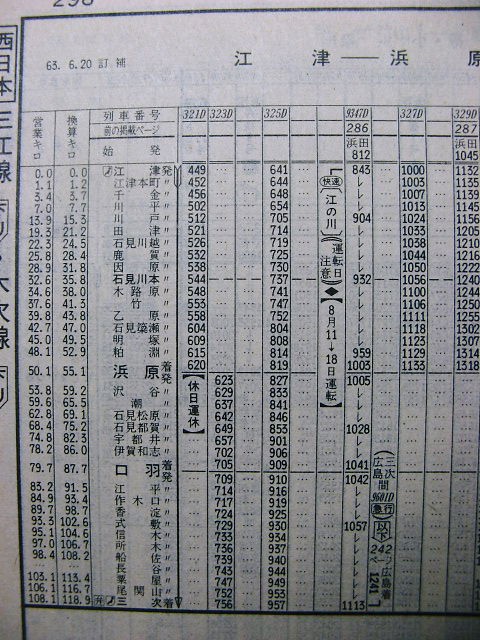 298
63. 6.20 訂補
江 津 — 浜 原
西日本
三江線
営業キロ 換算キロ 列車番号 321D 323D 325D 9347D 327D 329D
前の掲載ページ 286 287
始発 浜田 812 浜田 1045
0.0 0.0 江津発 449 641 843 1000 1132
1.1 1.2 江津本町 〃 452 644 レ 1003 1135
3.4 3.7 千金 〃 456 648 レ 1007 1139
7.0 7.7 川平 〃 502 654 レ 1013 1145
13.9 15.3 川戸 〃 512 705 904 1024 1156
19.3 21.2 田津 〃 521 714 レ 1033 1205
22.3 24.5 石見川越 〃 526 719 レ 1038 1210
25.8 28.4 鹿賀 〃 532 725 レ 1044 1216
28.9 31.8 因原 〃 538 730 レ 1050 1222
32.6 35.8 石見川本 〃 544 737 932 1056 1240
34.6 38.0 木路原 〃 548 741 レ 1100 1244
37.6 41.3 竹 〃 553 747 レ 1106 1250
39.8 43.8 乙原 〃 558 752 レ 1110 1255
42.7 47.0 石見簗瀬 〃 604 804 レ 1118 1302
45.0 49.5 明塚 〃 609 808 レ 1123 1307
48.1 52.9 粕淵 〃 615 814 959 1129 1314
50.1 55.1 浜原着 620 819 1003 1133 1318
発 623 827 1005
53.8 59.2 沢谷 〃 629 833 レ
59.6 65.5 潮 〃 637 841 レ
62.8 69.1 石見松原 〃 642 846 レ
68.4 75.2 石見都賀 〃 649 853 1028
74.8 82.3 宇都井 〃 657 901 レ
78.2 86.0 伊賀和志 〃 702 906 レ
79.7 87.7 口羽着 705 909 1041
発 709 910 1042
83.2 91.5 江平 〃 714 916 レ
84.9 93.4 作木口 〃 717 919 レ
89.7 98.7 香淀 〃 724 925 レ
93.3 102.6 式敷 〃 729 930 1057
95.1 104.6 信木 〃 733 934 レ
97.0 106.7 所木 〃 736 937 レ
98.4 108.2 船佐 〃 739 940 レ
長谷 〃 743 944 レ
103.1 113.4 粟屋 〃 747 949 レ
106.1 116.7 尾関山 〃 752 953 レ
108.1 118.9 三次着 756 957 1113
【休日運休】
快速
江の川
運転日注意
◆【8月11→18日運転】
三次広島間
9601D
急行
以下242ページ
広島着1241